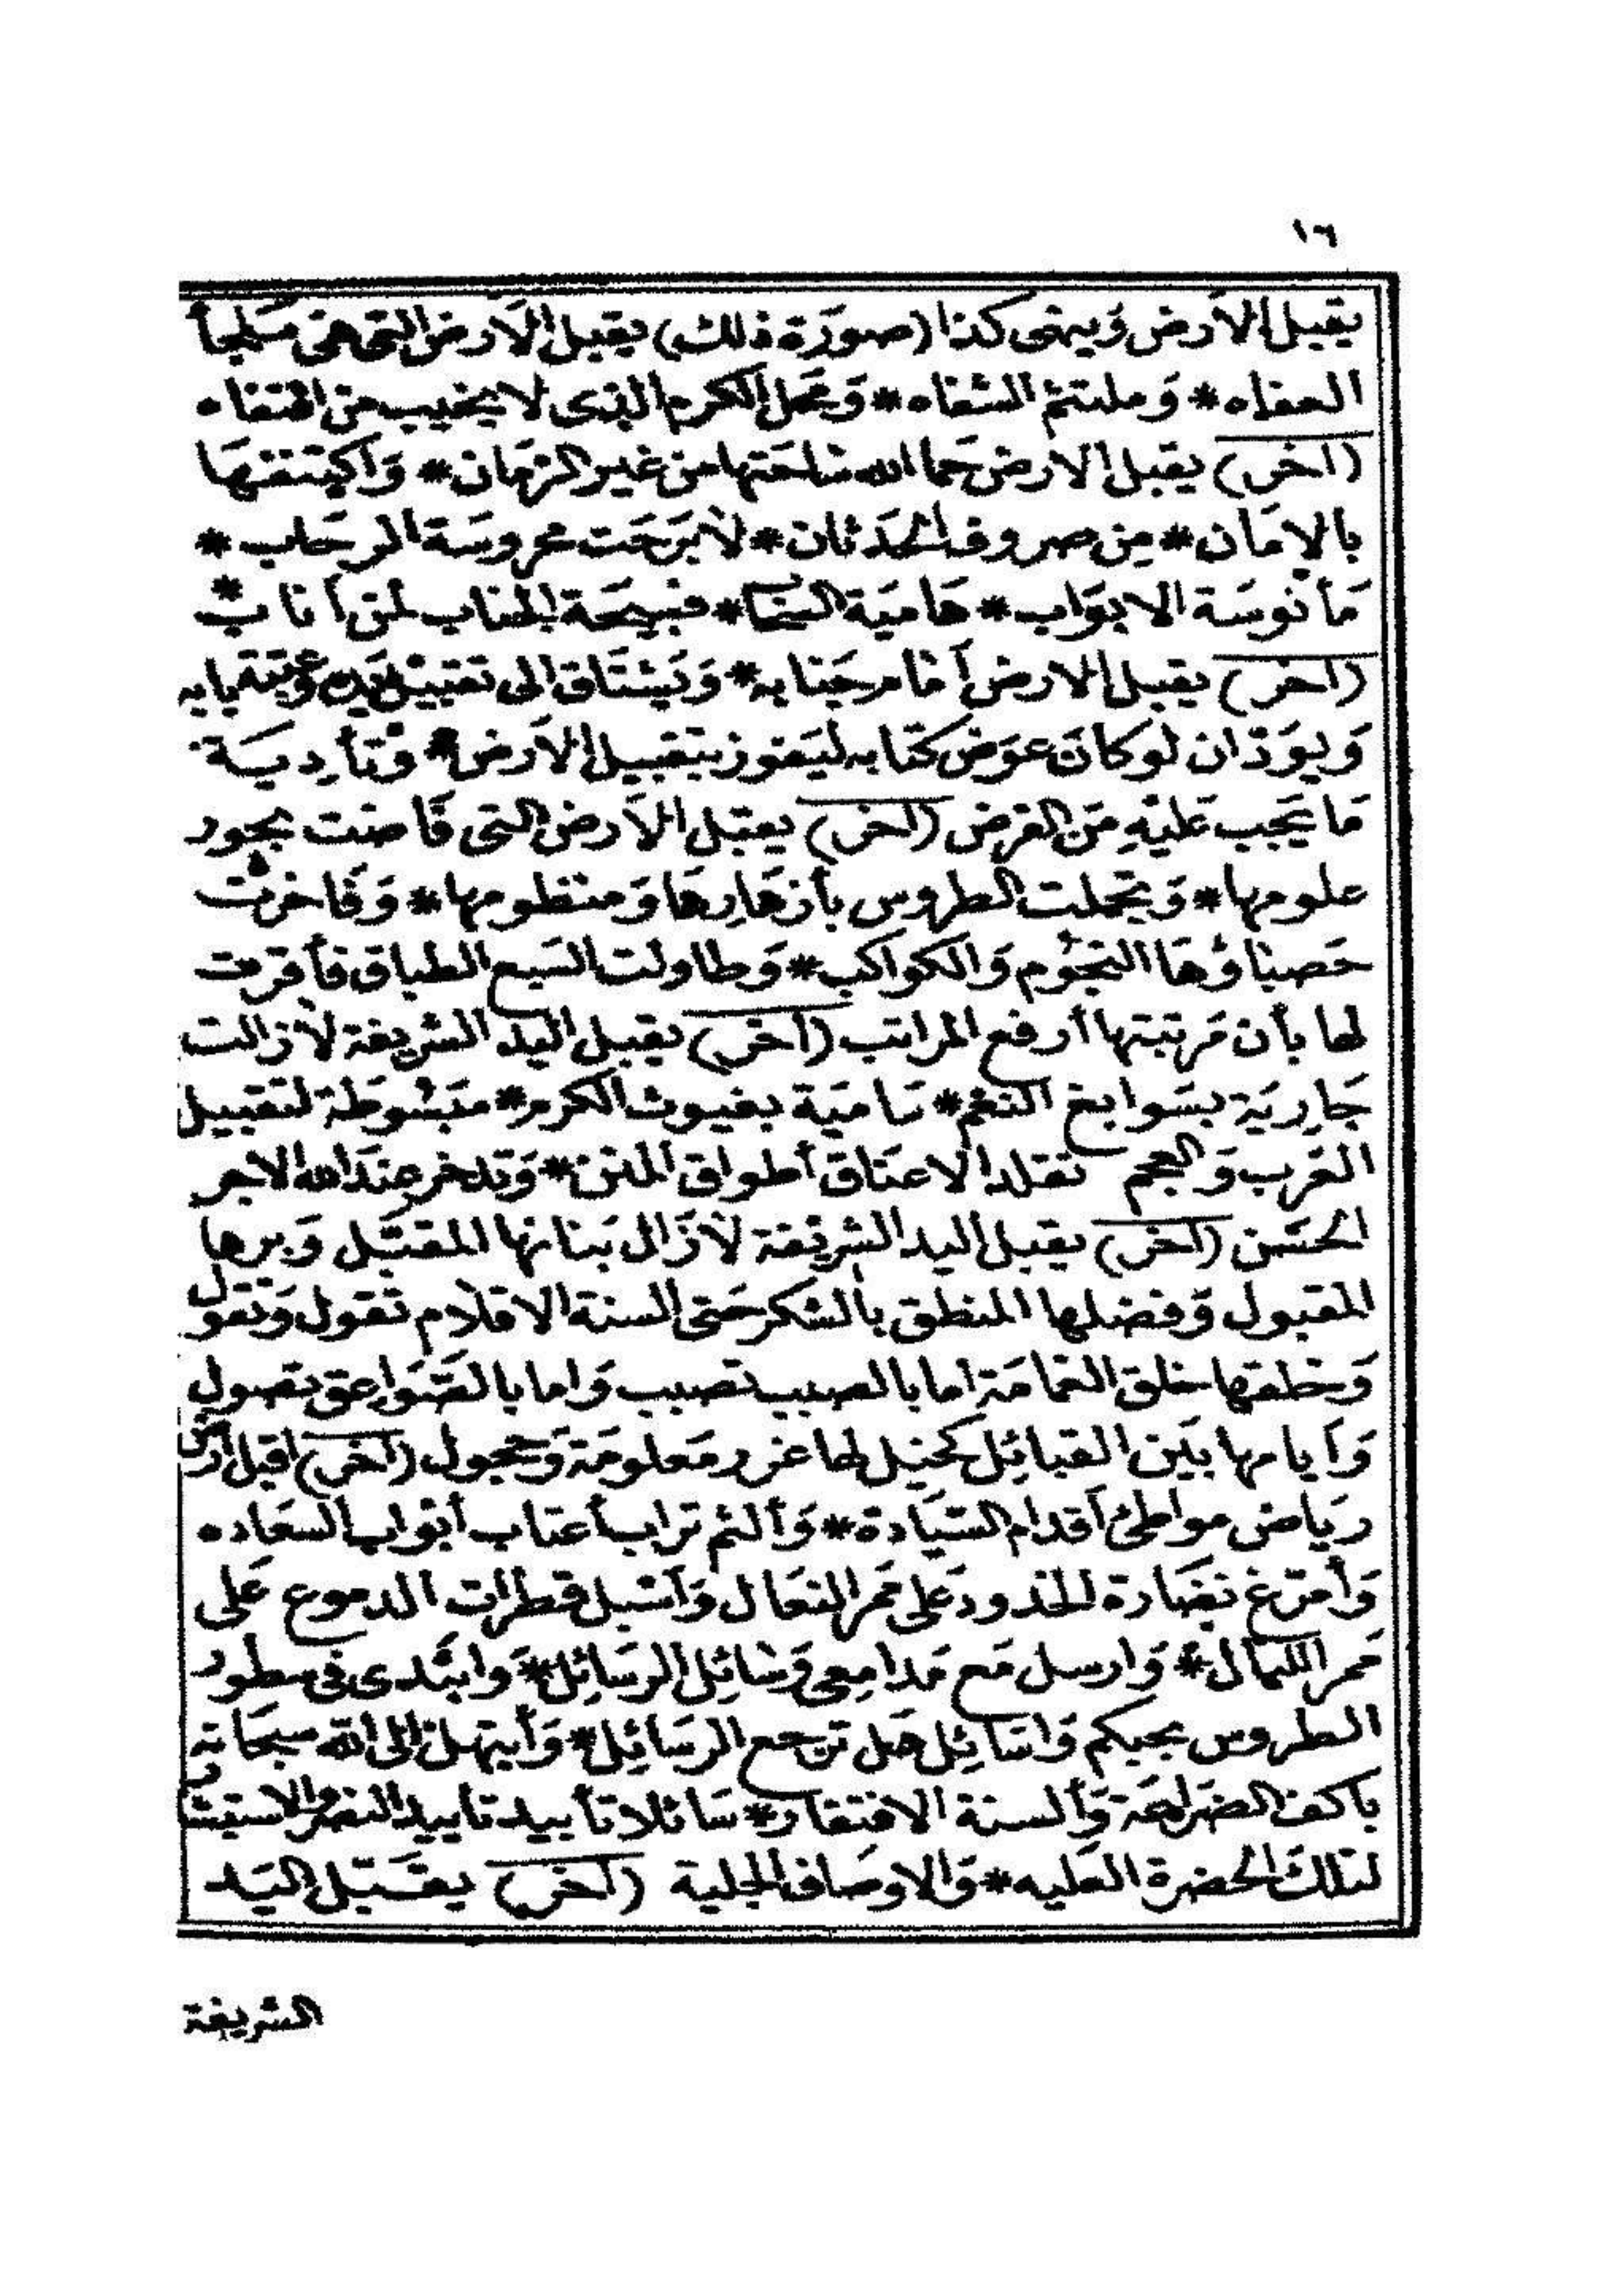 ١٦
يقبل الأرض وينهى كذا (صورة ذلك) يقبل الأرض التى هى ملجأ
العفاه * وملتثم الشفاه * ومحل الكرم الذى لا يخيب من اقتفاه
(اخر) يقبل الارض حما الله ساحتها من غير الزمان * واكتنفها
بالامان * من صروف الحدثان * لا برحت محروسة الرحاب *
مأنوسة الابواب * هامية السحاب * فسيحة الجناب لمن أناب *
(اخر) يقبل الارض أمام جنابه * ويشتاق الى تقبيل يده وعتبة بابه
ويود ان لو كان عوض كتابه ليفوز بتقبيل الأرض * وتأدية
ما يجب عليه من الفرض (اخر) يقبل الأرض التى فاضت بحور
علومها * وتجملت الطروس بأزهارها ومنظومها * وفاخرت
حصباؤها النجوم والكواكب * وطاولت السبع الطباق فأقرت
لها بأن مرتبتها أرفع المراتب (اخر) يقبل اليد الشريفة لا زالت
جارية بسوابغ النعم * سامية بغيوث الكرم * مبسوطة لتقبيل
العرب والعجم تقلد الاعناق أطواق المنن * وتدخر عند الله الاجر
الحسن (اخر) يقبل اليد الشريفة لا زال بنانها المقبل وبرها
المقبول وفضلها المنطق بالشكر حتى السنة الاقلام تقول وتقول
وخلقها خلق الغمامة اما بالصيب تصيب واما بالصواعق تصول
وأيامها بين القبائل كخيل لها غرر معلومة وحجول (اخر) اقبل أرض
رياض مواطئ أقدام السيادة * وألثم تراب أعتاب أبواب السعاده
وأمرغ نضارة الخدود على ممر النعال وأسبل قطرات الدموع على
ممر الليال * وارسل مع مدامعى وسائل الرسائل * وابتدى فى سطور
الطروس بحبكم واسائل هل ترجع الرسائل * وأبتهل الى الله سبحانه
باكف الضراعة وألسنة الافتقار * سائلا تأبيد تاييد النصر والاستبشار
لتلك الحضرة العليه * والاوصاف الجلية (اخر) يقبل اليد
الشريفة